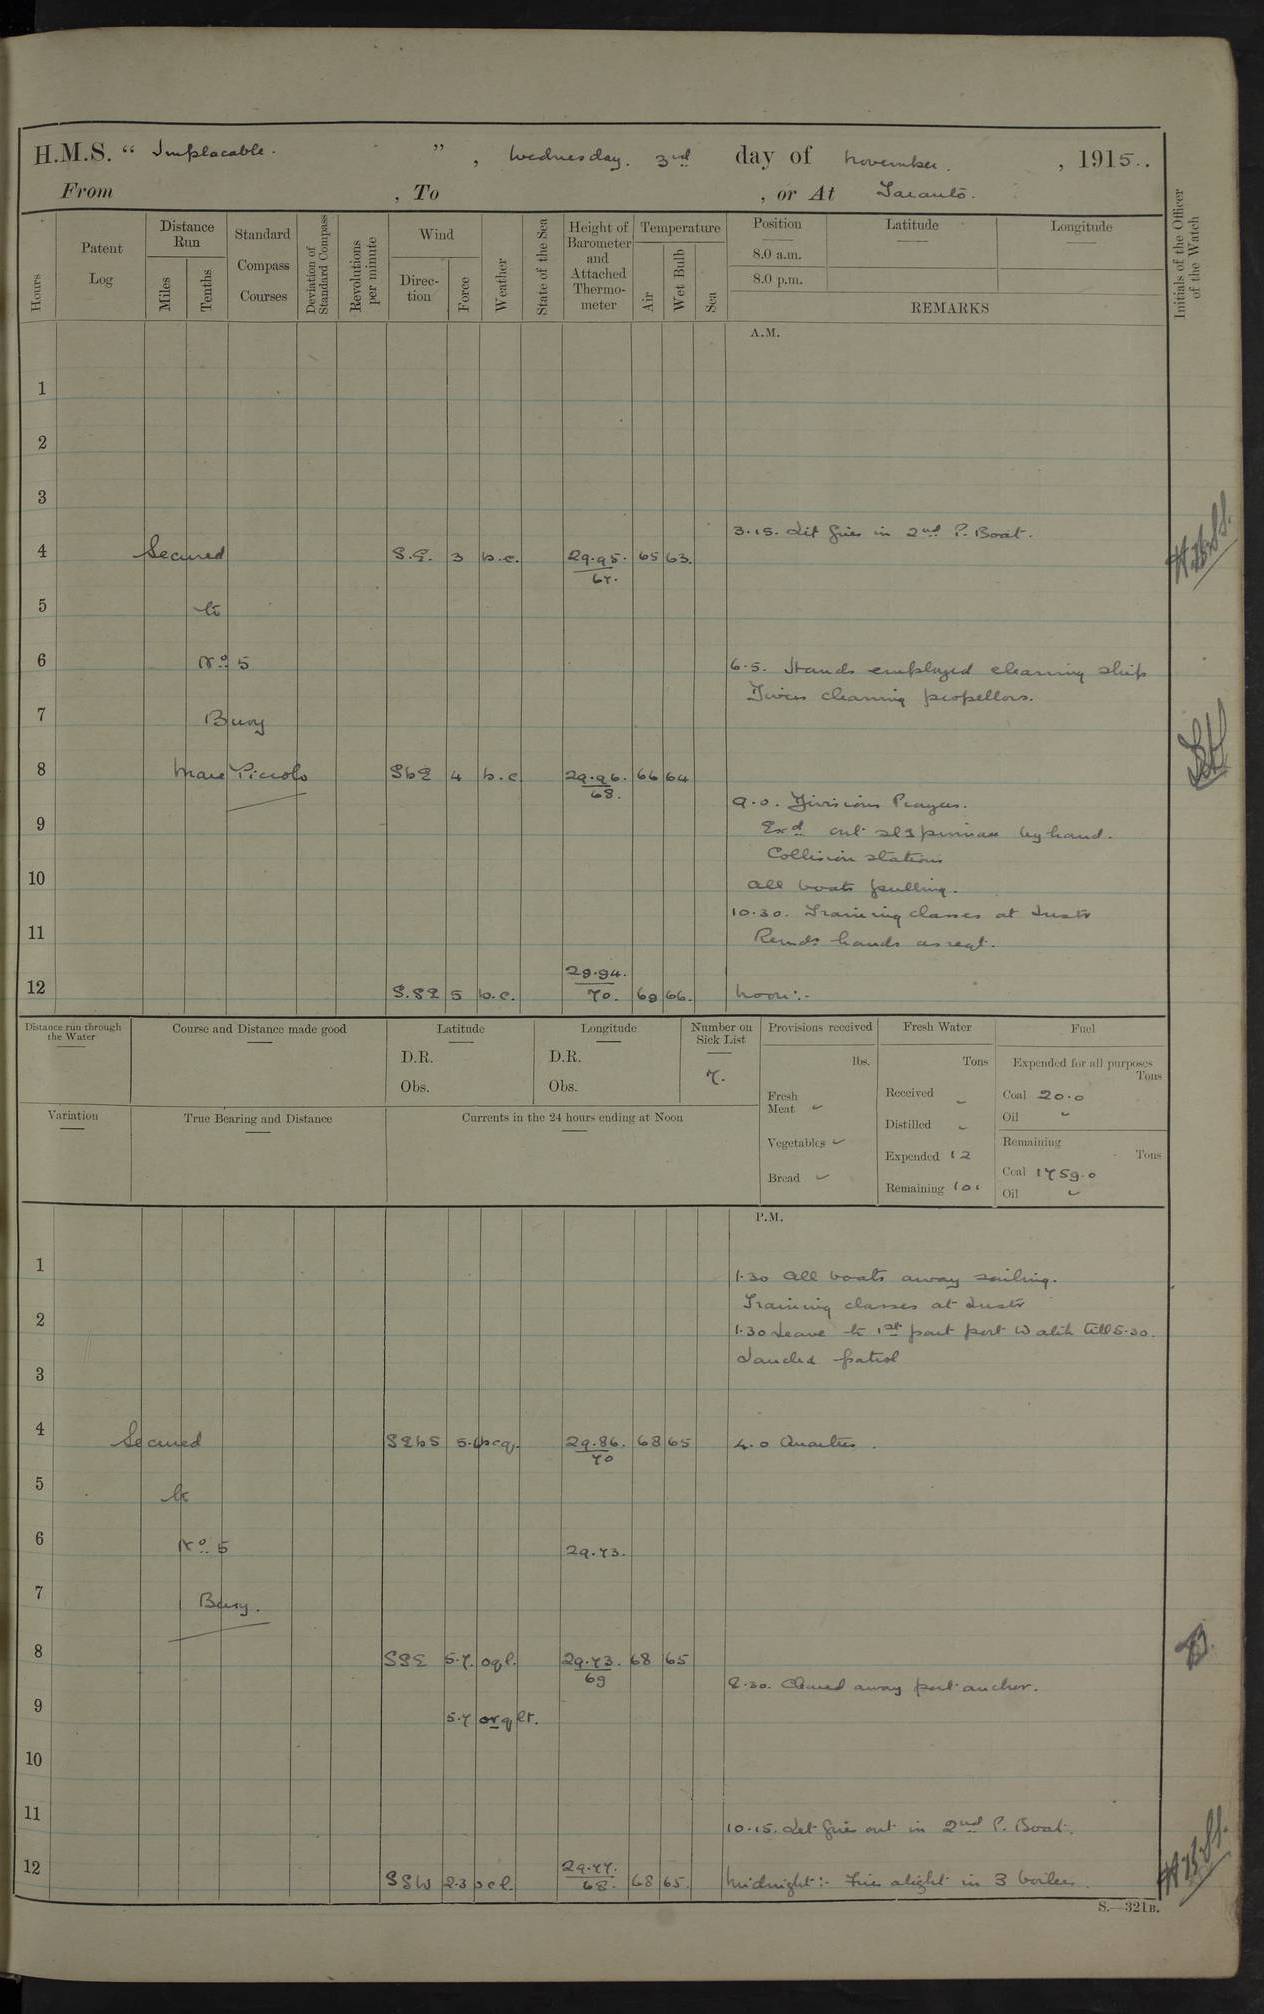 H.M.S. “ Implacable. ” , Wednesday. 3rd day of November. , 1915..
From , To , or At Taranto.
Hours
Patent Log
Distance Run
Miles
Tenths
Standard Compass Courses
Deviation of Standard Compass
Revolutions per minute
Wind
Direction
Force
Weather
State of the Sea
Height of Barometer and Attached Thermometer
Temperature
Air
Wet Bulb
Sea
Position
8.0 a.m.
8.0 p.m.
Latitude
Longitude
REMARKS
Initials of the Officer of the Watch
A.M.
1
2
3
3.15. Lit fires in 2nd P. Boat.
4 Secured S.E. 3 b.c. 29.95. 65 63.
67.
5 to
6 No. 5
6.5. Hands employed cleaning ship
Divers cleaning propellors.
7 Buoy
8 Mare Piccolo SbE 4 b.c 29.96. 66 64
68.
9.0. Divisions Prayers.
9 Exd out sls pinnace by hand.
Collision stations
10 All boats pulling.
10.30. Training classes at Instr
11 Remdr hands as reqt.
29.94.
12 S.SE 5 b.c. 70. 69 66. Noon:-
Distance run through the Water
Course and Distance made good
Latitude
D.R.
Obs.
Longitude
D.R.
Obs.
Number on Sick List
7.
Provisions received
lbs.
Fresh Meat
Vegetables
Bread
Fresh Water
Tons
Received
Distilled
Expended 12
Remaining 101
Fuel
Expended for all purposes
Tons
Coal 20.0
Oil
Remaining
Tons
Coal 1759.0
Oil
Variation
True Bearing and Distance
Currents in the 24 hours ending at Noon
P.M.
1
1.30 All boats away sailing.
Training classes at Instr
2 1.30 Leave to 1st part port Watch till 5.30.
Landed patrol
3
4 Secured SEbS 5.6 bcq. 29.86. 68 65 4.0 Quarters.
70
5 to
6 No. 5 29.73.
7 Buoy.
8 SSE 5.7. oql. 29.73. 68 65
69
8.30. Cleared away port anchor.
9 5.7 orqlt.
10
11
10.15. Let fires out in 2nd P. Boat.
12 SSW 2.3 bcl. 29.77. 68 65. Midnight:- Fires alight in 3 boilers.
68.
S.—321B.